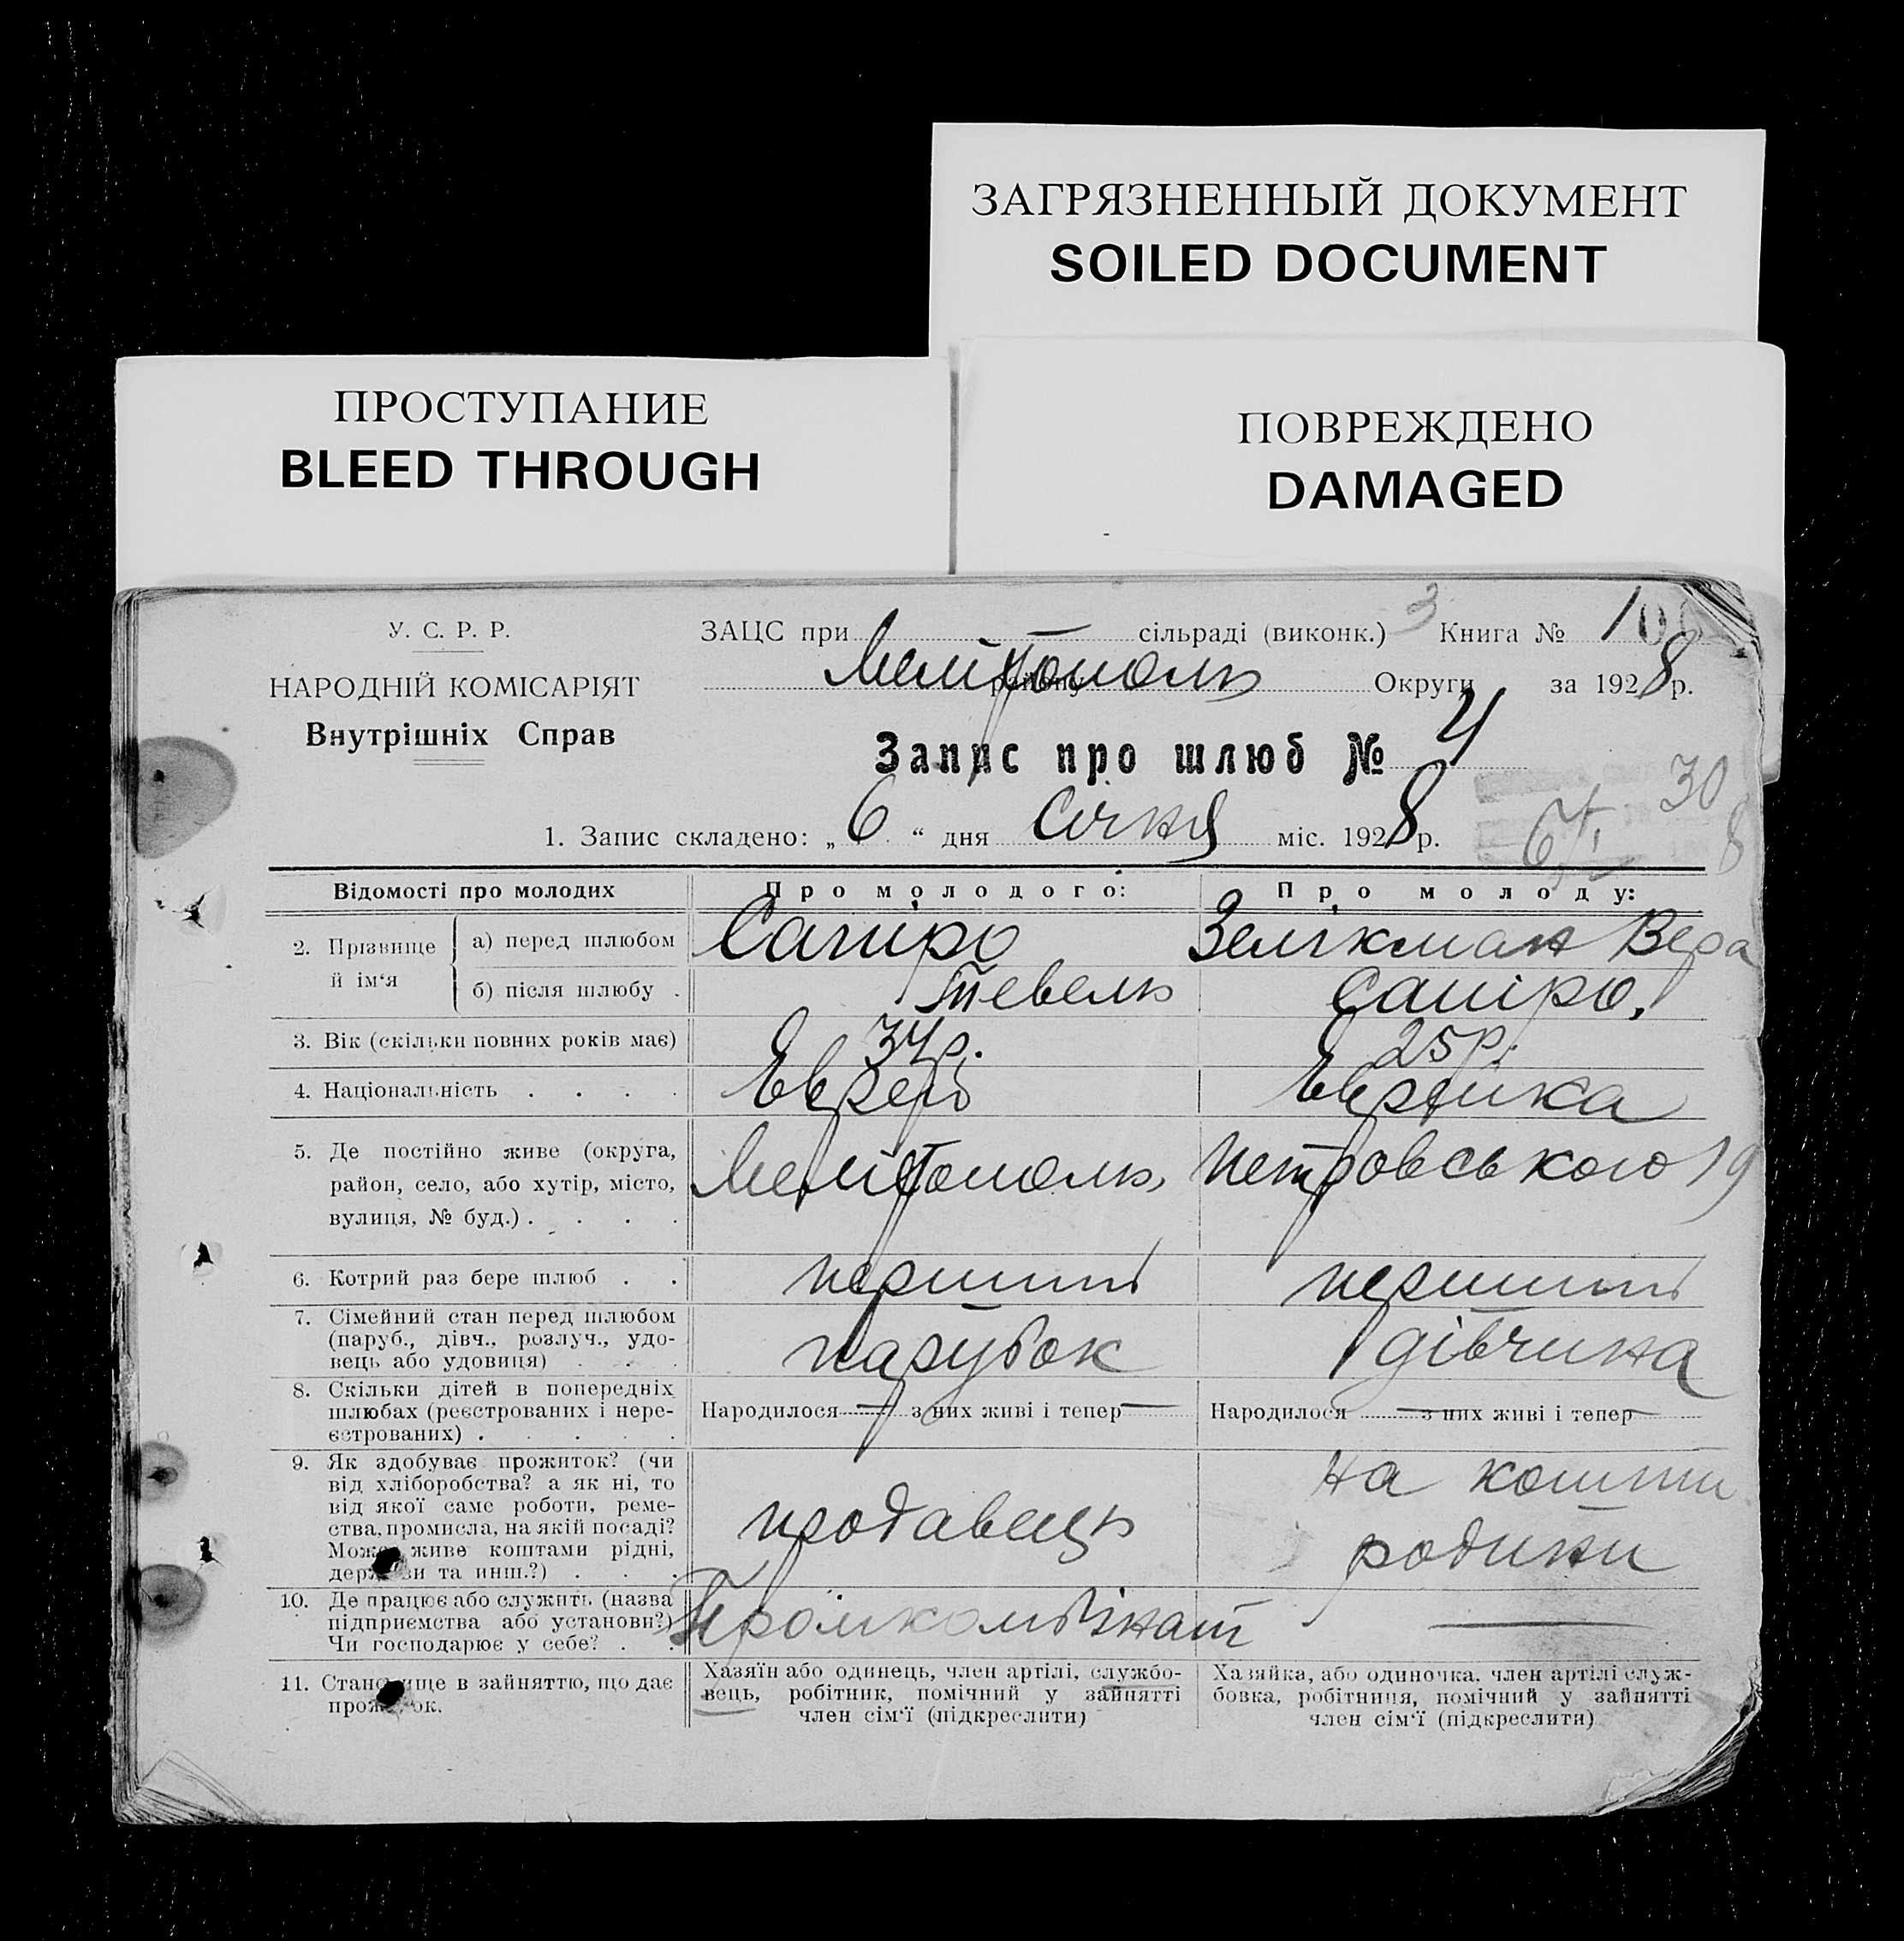 ЗАГРЯЗНЕННЫЙ ДОКУМЕНТ
SOILED DOCUMENT
ПРОСТУПАНИЕ
BLEED THROUGH
ПОВРЕЖДЕНО
DAMAGED
У. С. Р. Р.
НАРОДНІЙ КОМІСАРІЯТ
Внутрішніх Справ
ЗАЦС при сільраді (виконк.) 3 Книга № 1
Мелітополь району Округи за 1928 р.
Запис про шлюб № 4
30
1. Запис складено: „6“ дня Січня міс. 1928 р.
Відомості про молодих
Про молодого:
Про молоду:
2. Прізвище й ім‘я
а) перед шлюбом
Сапіро
Зелікман Вера
б) після шлюбу .
Тевель
Сапіро.
3. Вік (скільки повних років має)
34р.
25р.
4. Національність . . . .
Єврей
Єврейка
5. Де постійно живе (округа,
район, село, або хутір, місто,
вулиця, № буд.) . . . .
Мелітополь, Петровського 19
6. Котрий раз бере шлюб . .
перший
перший
7. Сімейний стан перед шлюбом
(паруб., дівч., розлуч., удо-
вець або удовиця) . . .
парубок
дівчина
8. Скільки дітей в попередніх
шлюбах (реєстрованих і нере-
єстрованих) . . . . .
Народилося — з них живі і тепер —
Народилося — з них живі і тепер —
9. Як здобуває прожиток? (чи
від хліборобства? а як ні, то
від якої саме роботи, реме-
ства, промисла, на якій посаді?
Може живе коштами рідні,
держави та инш.?) . . .
продавець
на кошти
родини
10. Де працює або служить (назва
підприємства або установи?)
Чи господарює у себе? . .
Промкомбінат
—
11. Становище в зайняттю, що дає
прожиток.
Хазяїн або одинець, член артілі, службо-
вець, робітник, помічний у зайнятті
член сім‘ї (підкреслити)
Хазяйка, або одиночка, член артілі служ-
бовка, робітниця, помічний у зайнятті
член сім‘ї (підкреслити)